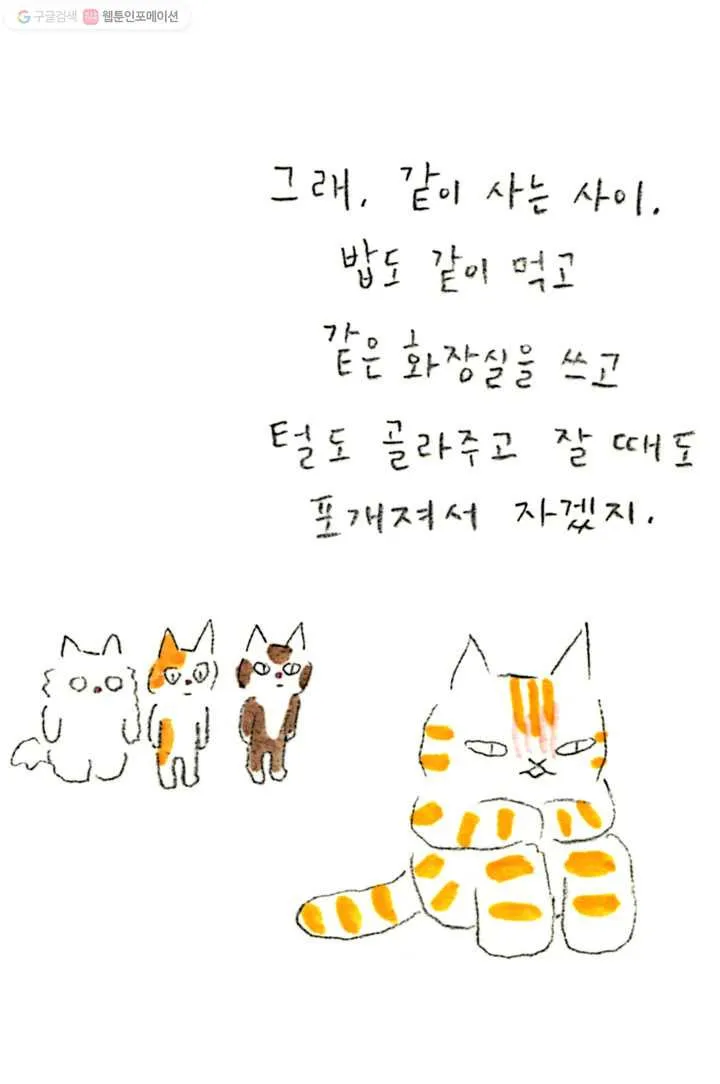 구글검색 웹툰인포메이션
그래, 같이 사는 사이.
밥도 같이 먹고
같은 화장실을 쓰고
털도 골라주고 잘 때도
포개져서 자겠지.